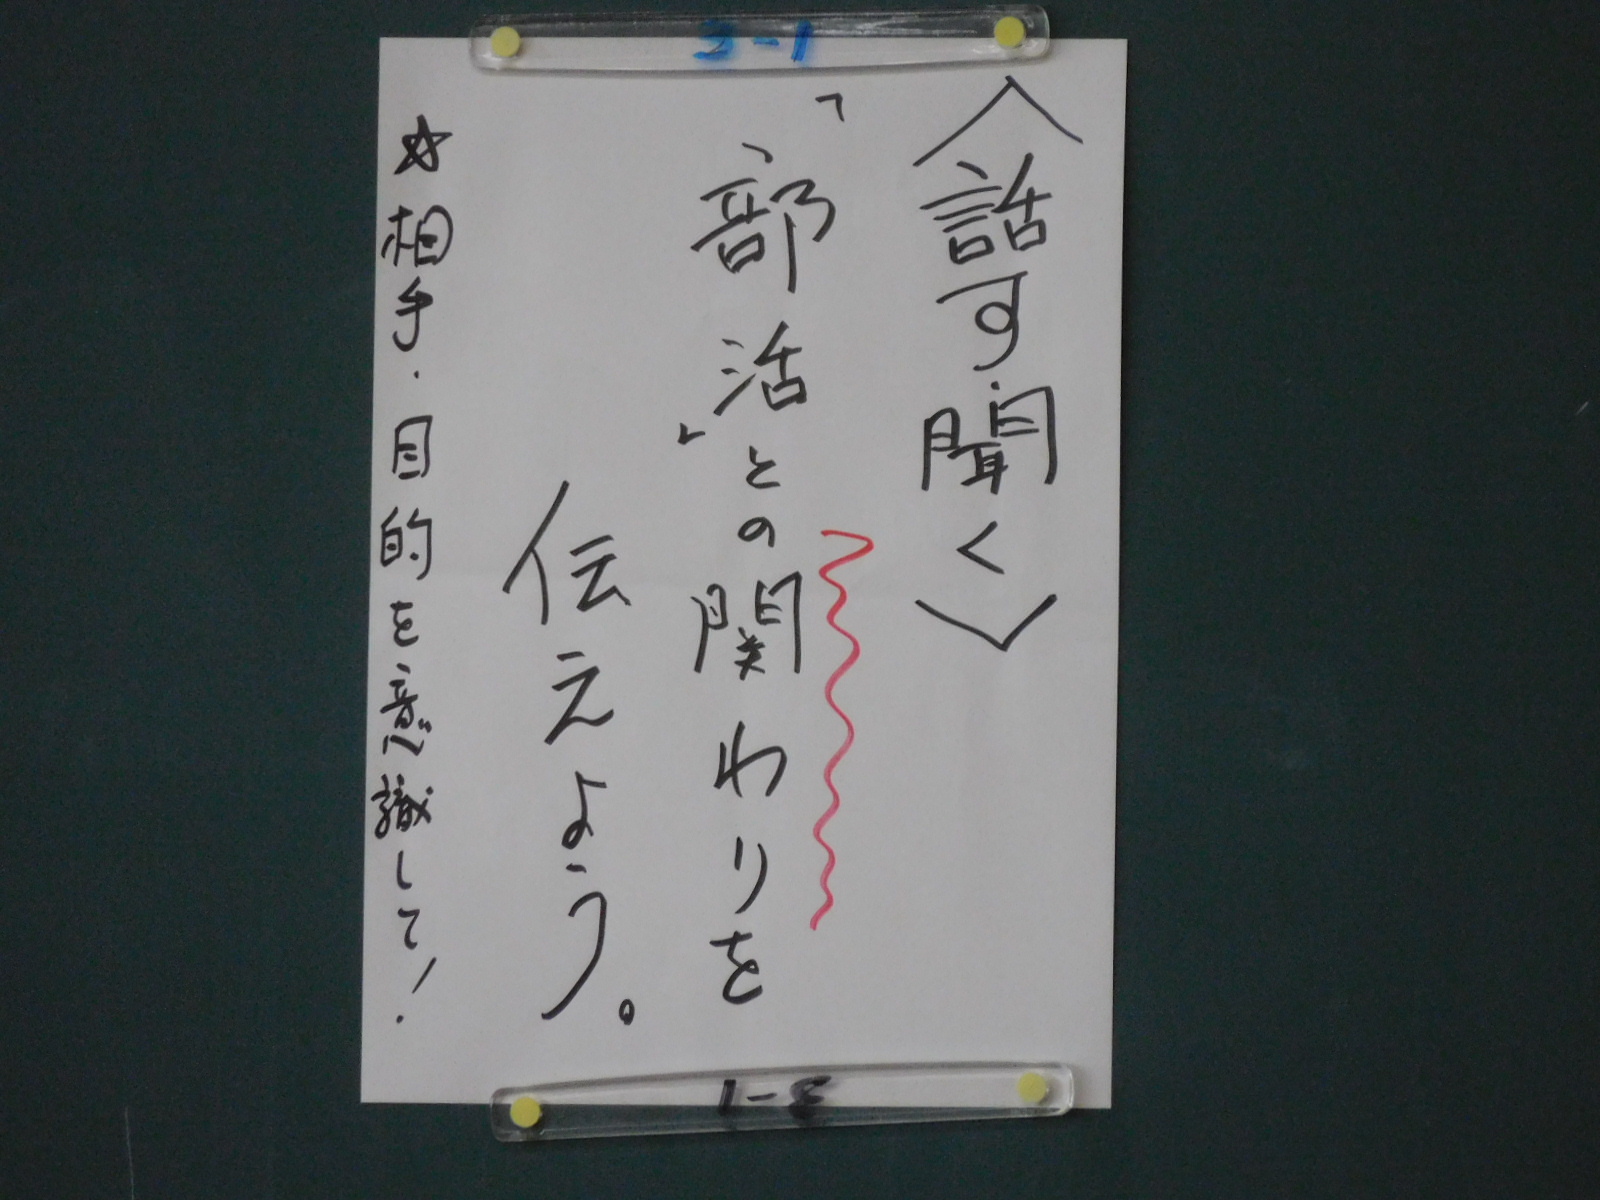 3-1
〈話す聞く〉
「部活」との関わりを
伝えよう。
☆相手・目的を意識して!
3-1